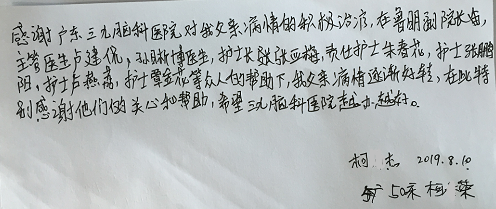 感谢广东三九脑科医院对我父亲病情的积极治疗,在鲁明副院长,
主管医生卢建侃,孙晰博医生,护士长张亚梅,责任护士朱春花,护士张鹏
阳,护士卢燕荔,护士覃金花等众人的帮助下,我父亲病情逐渐好转,在此特
别感谢他们的关心和帮助,希望三九脑科医院越办越好。
柯 2019.8.10
50床 柯 荣